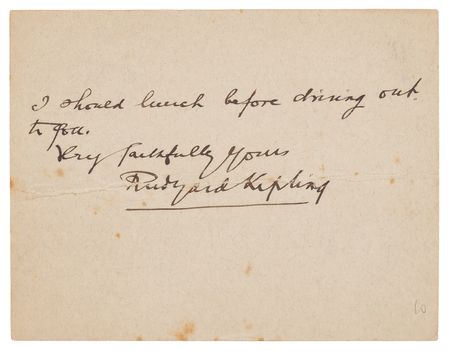 I should lunch before driving out.
to you.
Very faithfully yours
Rudyard Kipling
60